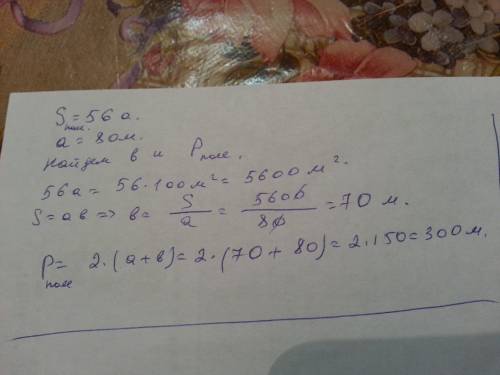 S поле = 56 а.
a = 80 м.
Найдем в и P поле.
56а = 56·100 м² = 5600 м².
S = ав => в = S/a = 5600/80 = 70 м.
P поле = 2·(а+в) = 2·(70+80) = 2·150 = 300 м.